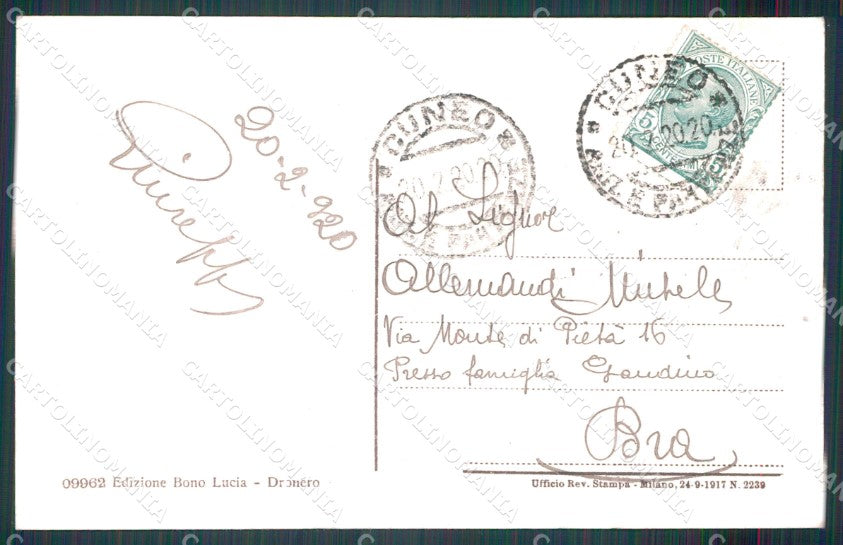 20-2-920
Giuseppe
CUNEO
20.2.20 20
CUNEO
20. 20 20
POSTE ITALIANE
5
Al Signor
Allemandi Michele
Via Monte di Pietà 16
Presso famiglia Gandino
Bra
09962 Edizione Bono Lucia - Dronero
Ufficio Rev. Stampa - Milano, 24-9-1917 N. 2239
CARTOLINOMANIA